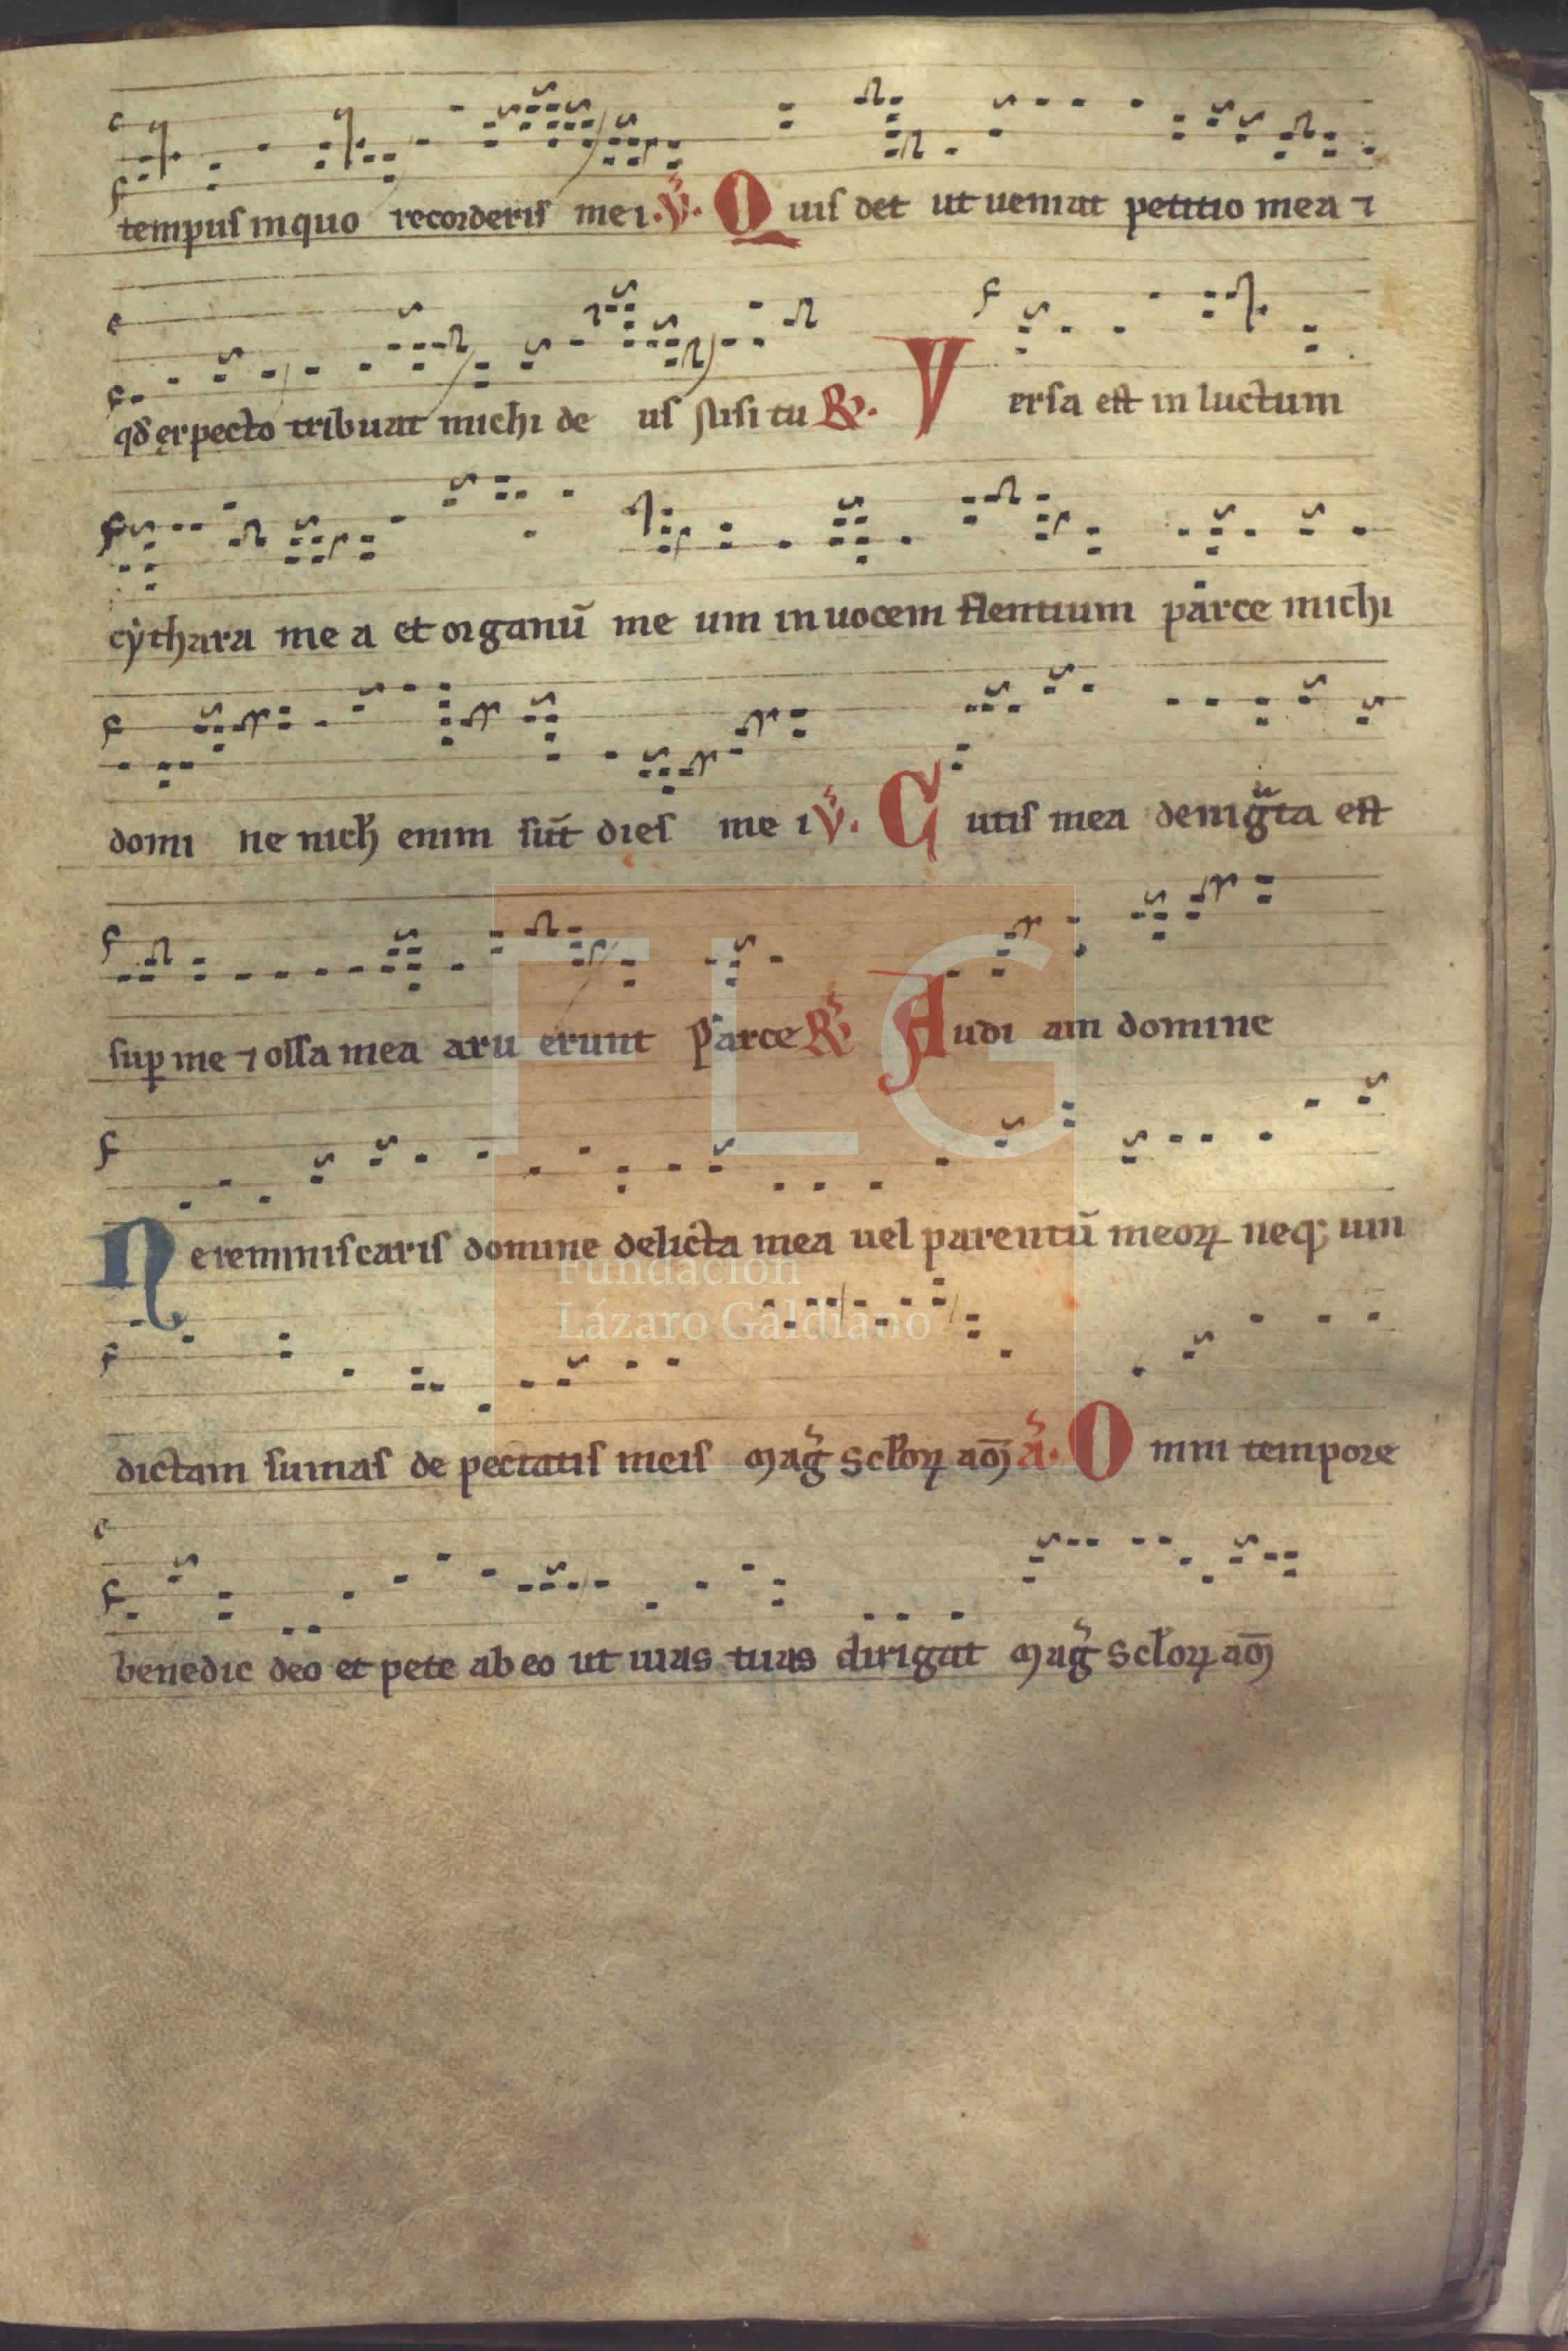 tempus inquo recorderis mei. ℣. Quis det ut ueniat petitio mea ⁊
qđ expecto tribuat michi deus Nisi tu ℟. Versa est in luctum
cẏthara mea et organū meum in uocem flentium parce michi
domine nich̃ enim sūt dies mei ℣. Cutis mea denigͣta est
suꝑ me ⁊ ossa mea aruerunt Parce ℟ Audiam domine
Ne reminiscaris domine delicta mea uel parentū meoꝝ neqꝫ uin
dictam sumas de peccatis meis Mag̃ Scłoꝝ am̄ a. Omni tempore
benedic deo et pete ab eo ut uias tuas dirigat Mag̃ Scłoꝝ am̄
FLG
Fundación
Lázaro Galdiano